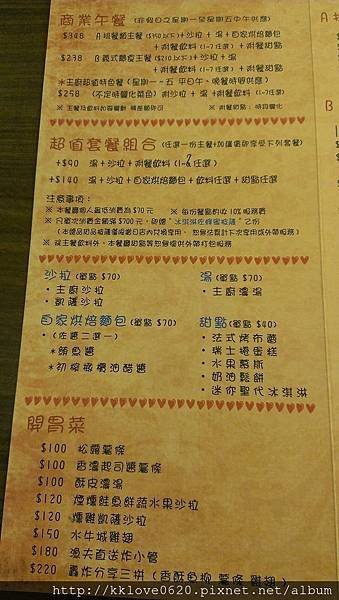 商業午餐 (非假日之星期一至星期五中午供應)
$348 A 視餐廳主餐 ($150以下) + 沙拉 + 湯 + 自家烘焙麵包
+ 附餐飲料 (1-7 任選) + 附餐甜點
$238 B 義式麵食主餐 ($210以下) + 沙拉 + 湯
+ 附餐飲料 (1-7任選) + 附餐甜點
*主廚超值特色餐 (星期一~五 平日午、晚餐時間供應)
$258 (不定時變化菜色) 附沙拉 + 湯 + 附餐飲料 (1-7任選) + 附餐甜點
超值套餐組合 (任選一份主餐加價後即享受下列套餐)
+$90 湯+沙拉+附餐飲料 (1-7任選)
+$140 湯+沙拉+自家烘焙麵包+飲料任選+甜點任選
注意事項:
※ 本餐廳個人最低消費為$70元 ※ 每份餐點酌收10%服務費
沙拉 (單點 $70)
・主廚沙拉
・凱薩沙拉
湯 (單點 $70)
・主廚濃湯
自家烘焙麵包 (單點 $70)
・(佐醬二選一)
*鮪魚醬
*初榨橄欖油醋醬
甜點 (單點 $40)
・法式烤布蕾
・瑞士捲蛋糕
・水果慕斯
・奶油鬆餅
・迷你聖代冰淇淋
開胃菜
$100 松露薯條
$100 香濃起司醬薯條
$100 酥皮濃湯
$120 煙燻鮭魚鮮蔬水果沙拉
$120 燻雞凱薩沙拉
$150 水牛城雞翅
$180 漁夫直送炸小管
$220 轟炸分享三拼 (香酥魚柳 薯條 雞翅)
http://kklove0620.pixnet.net/album